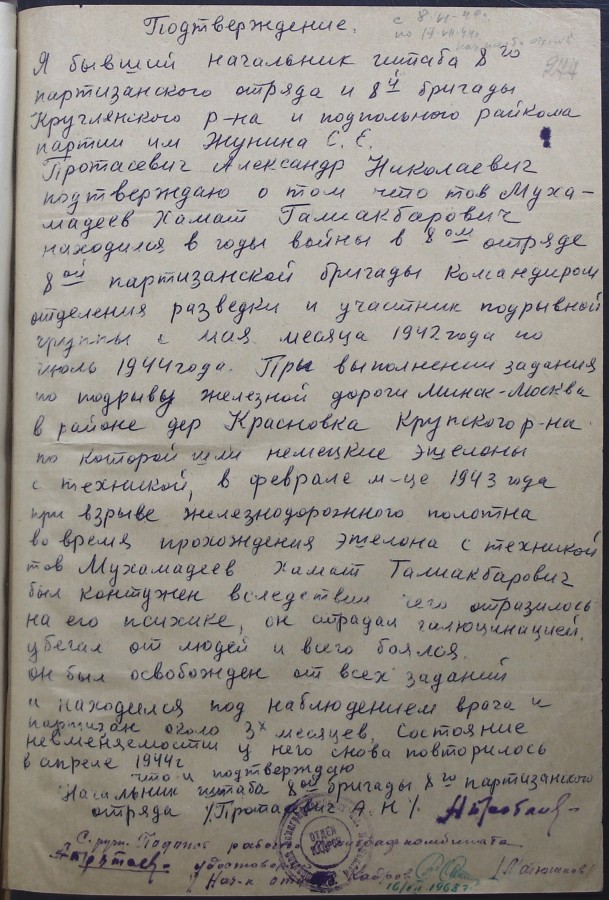 Подтверждение.
274
Я бывший начальник штаба 8го
партизанского отряда и 8й бригады
Круглянского р-на и подпольного райкома
партии им Жунина С. Е.
Протасевич Александр Николаевич
подтверждаю о том что тов Муха-
мадеев Хамат Галиакбарович
находился в годы войны в 8ом отряде
8ой партизанской бригады Командиром
отделения разведки и участник подрывной
группы с мая месяца 1942 года по
июль 1944 года. При выполнении задания
по подрыву железной дороги Минск-Москва
в районе дер Красновка Крупского р-на
по которой шли немецкие эшелоны
с техникой, в феврале м-це 1943 года
при взрыве железнодорожного полотна
во время прохождения эшелона с техникой
тов Мухамадеев Хамат Галиакбарович
был контужен вследствии чего отразилось
на его психике, он страдал галюцинацией,
убегал от людей и всего боялся.
он был освобожден от всех заданий
и находился под наблюдением врача и
партизан около 3х месяцев. Состояние
невменяемости у него снова повторилось
в апреле 1944г
что и подтверждаю
Начальник штаба 8ой бригады 8го партизанского
отряда /Протасевич А. Н/.
работ
удостовер
Нач-к от Кадров
1968г
ОТДЕЛ КАДРОВ